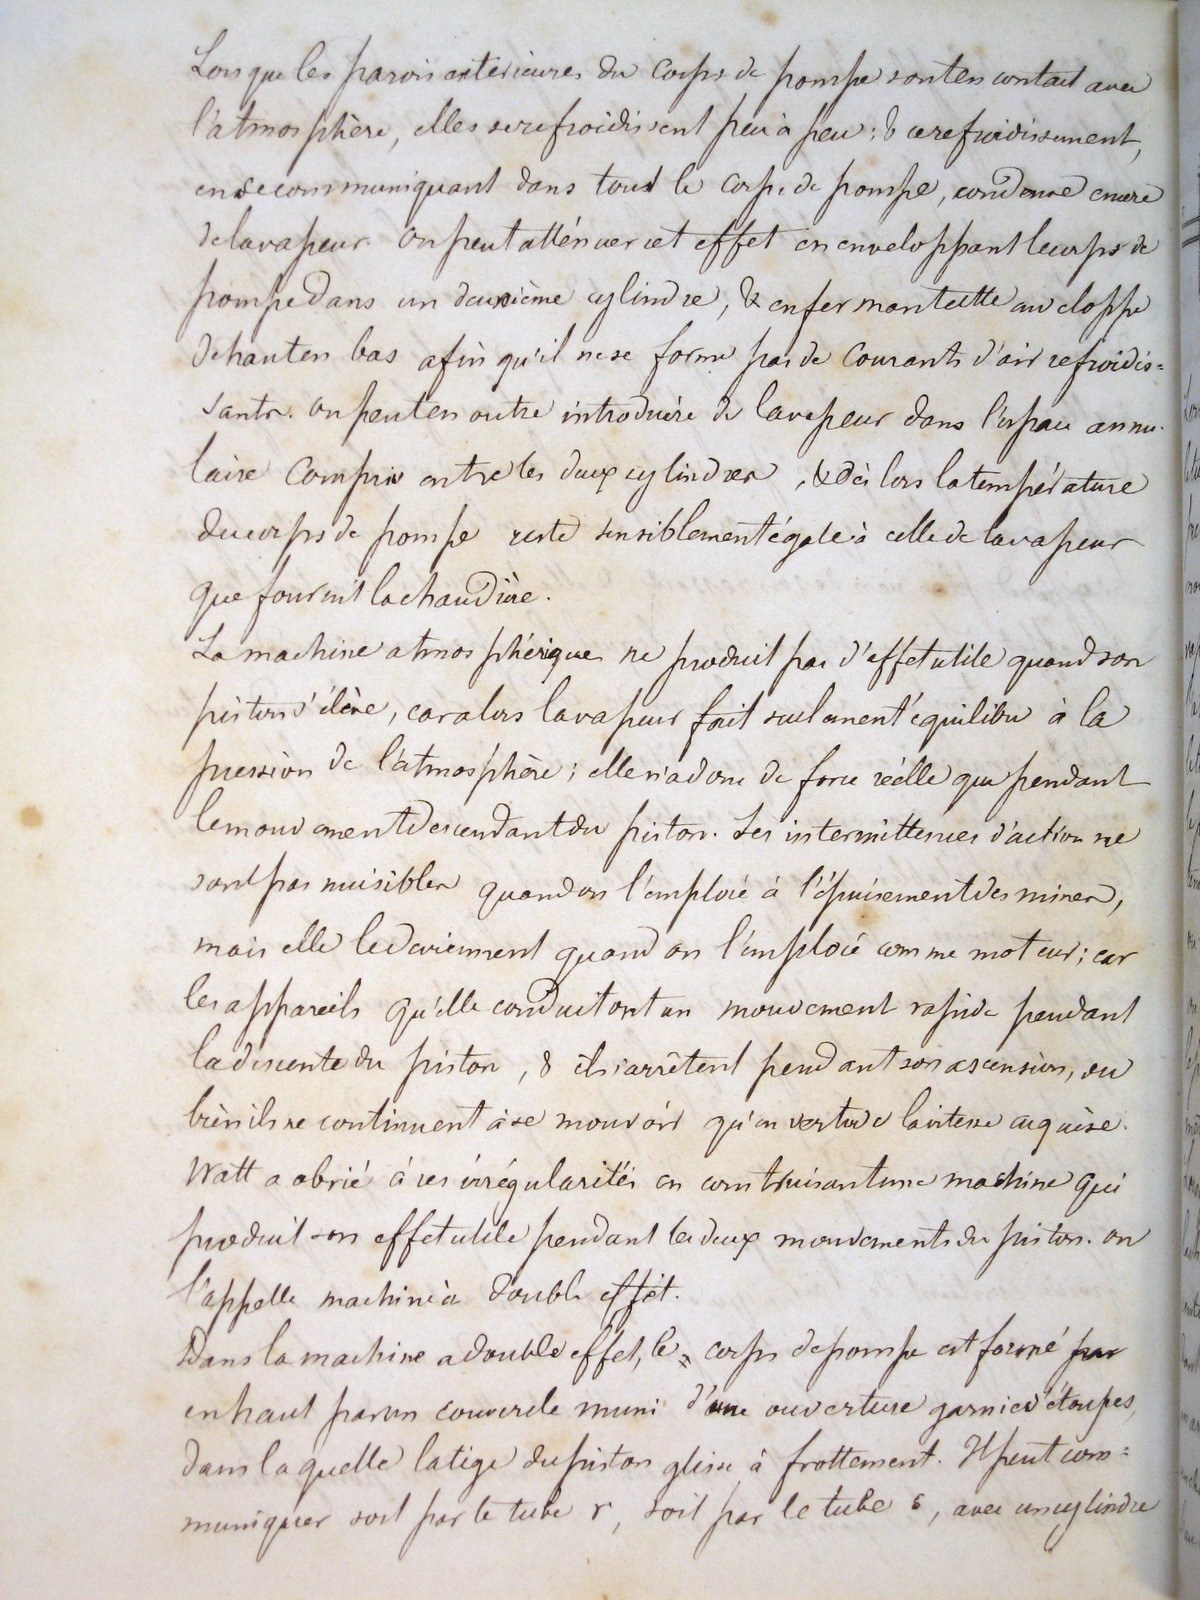 Lorsque les parois extérieures du corps de pompe sont en contact avec
l'atmosphère, elles se refroidissent peu à peu ; & ce refroidissement,
en se communiquant dans tout le corps de pompe, condense encore
de la vapeur. On peut atténuer cet effet en enveloppant le corps de
pompe dans un deuxième cylindre, & en fermant cette enveloppe
de haut en bas afin qu'il ne se forme pas de courants d'air refroidis=
sants. on peut en outre introduire de la vapeur dans l'espace annu-
laire compris entre les deux cylindres, & dès lors la température
du corps de pompe reste sensiblement égale à celle de la vapeur
que fournit la chaudière.
La machine atmosphérique ne produit pas d'effet utile quand son
piston s'élève, car alors la vapeur fait seulement équilibre à la
pression de l'atmosphère ; elle n'a donc de force réelle que pendant
le mouvement descendant du piston. Les intermittences d'action ne
sont pas nuisibles quand on l'emploie à l'épuisement des mines,
mais elle le deviennent quand on l'emploie comme moteur ; car
les appareils qu'elle conduit ont un mouvement rapide pendant
la descente du piston, & ils s'arrêtent pendant son ascension, ou
bien ils ne continuent à se mouvoir qu'en vertu de la vitesse acquise.
Watt a obvié à ces irrégularités en construisant une machine qui
produit son effet utile pendant les deux mouvements du piston. on
l'appelle machine à double effet.
Dans la machine a double effet, le corps de pompe est formé par
en haut par un couvercle muni d'une ouverture garnie d'étoupes,
dans laquelle la tige du piston glisse à frottement. Il peut com=
muniquer soit par le tube r, soit par le tube s, avec un cylindre